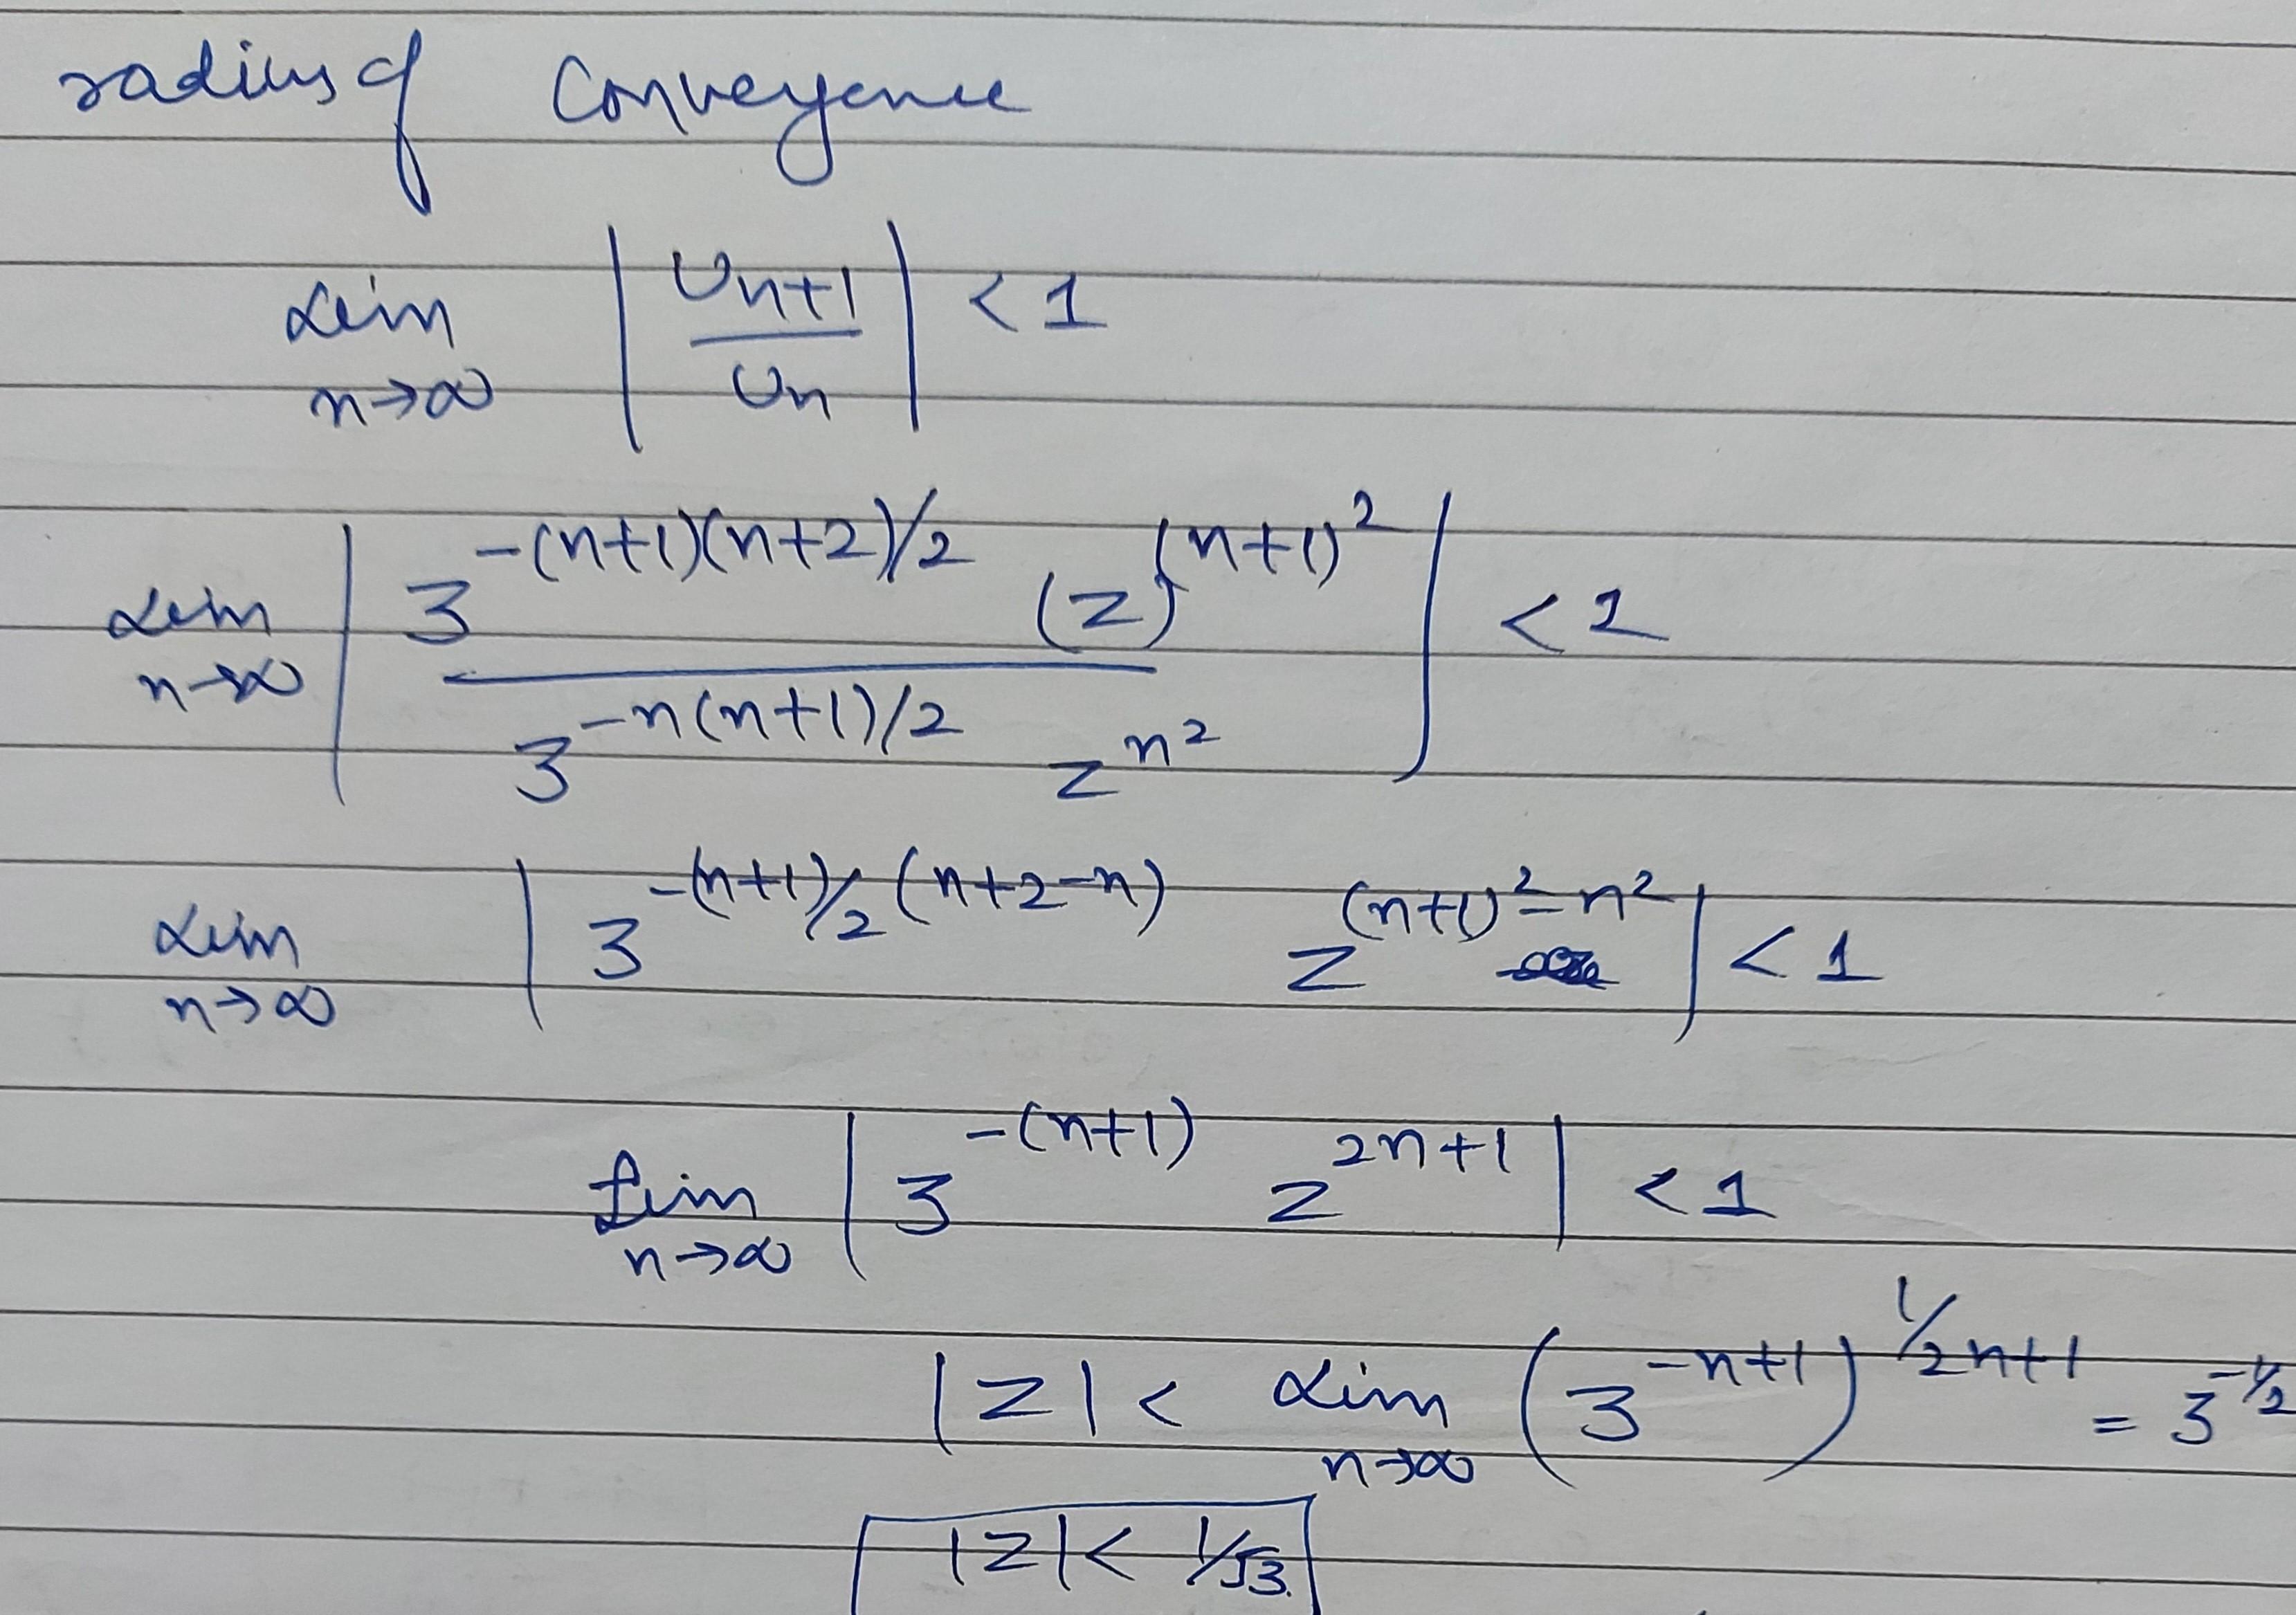 radius of Convergence
Lim n→∞ | Un+1 / Un | < 1
Lim n→∞ | 3^{-(n+1)(n+2)/2} (z)^{(n+1)^2} / 3^{-n(n+1)/2} z^{n^2} | < 1
Lim n→∞ | 3^{-(n+1)/2 (n+2-n)} z^{(n+1)^2-n^2} | < 1
Lim n→∞ | 3^{-(n+1)} z^{2n+1} | < 1
|z| < Lim n→∞ (3^{-n+1})^{1/2n+1} = 3^{-1/2}
|z| < 1/√3.